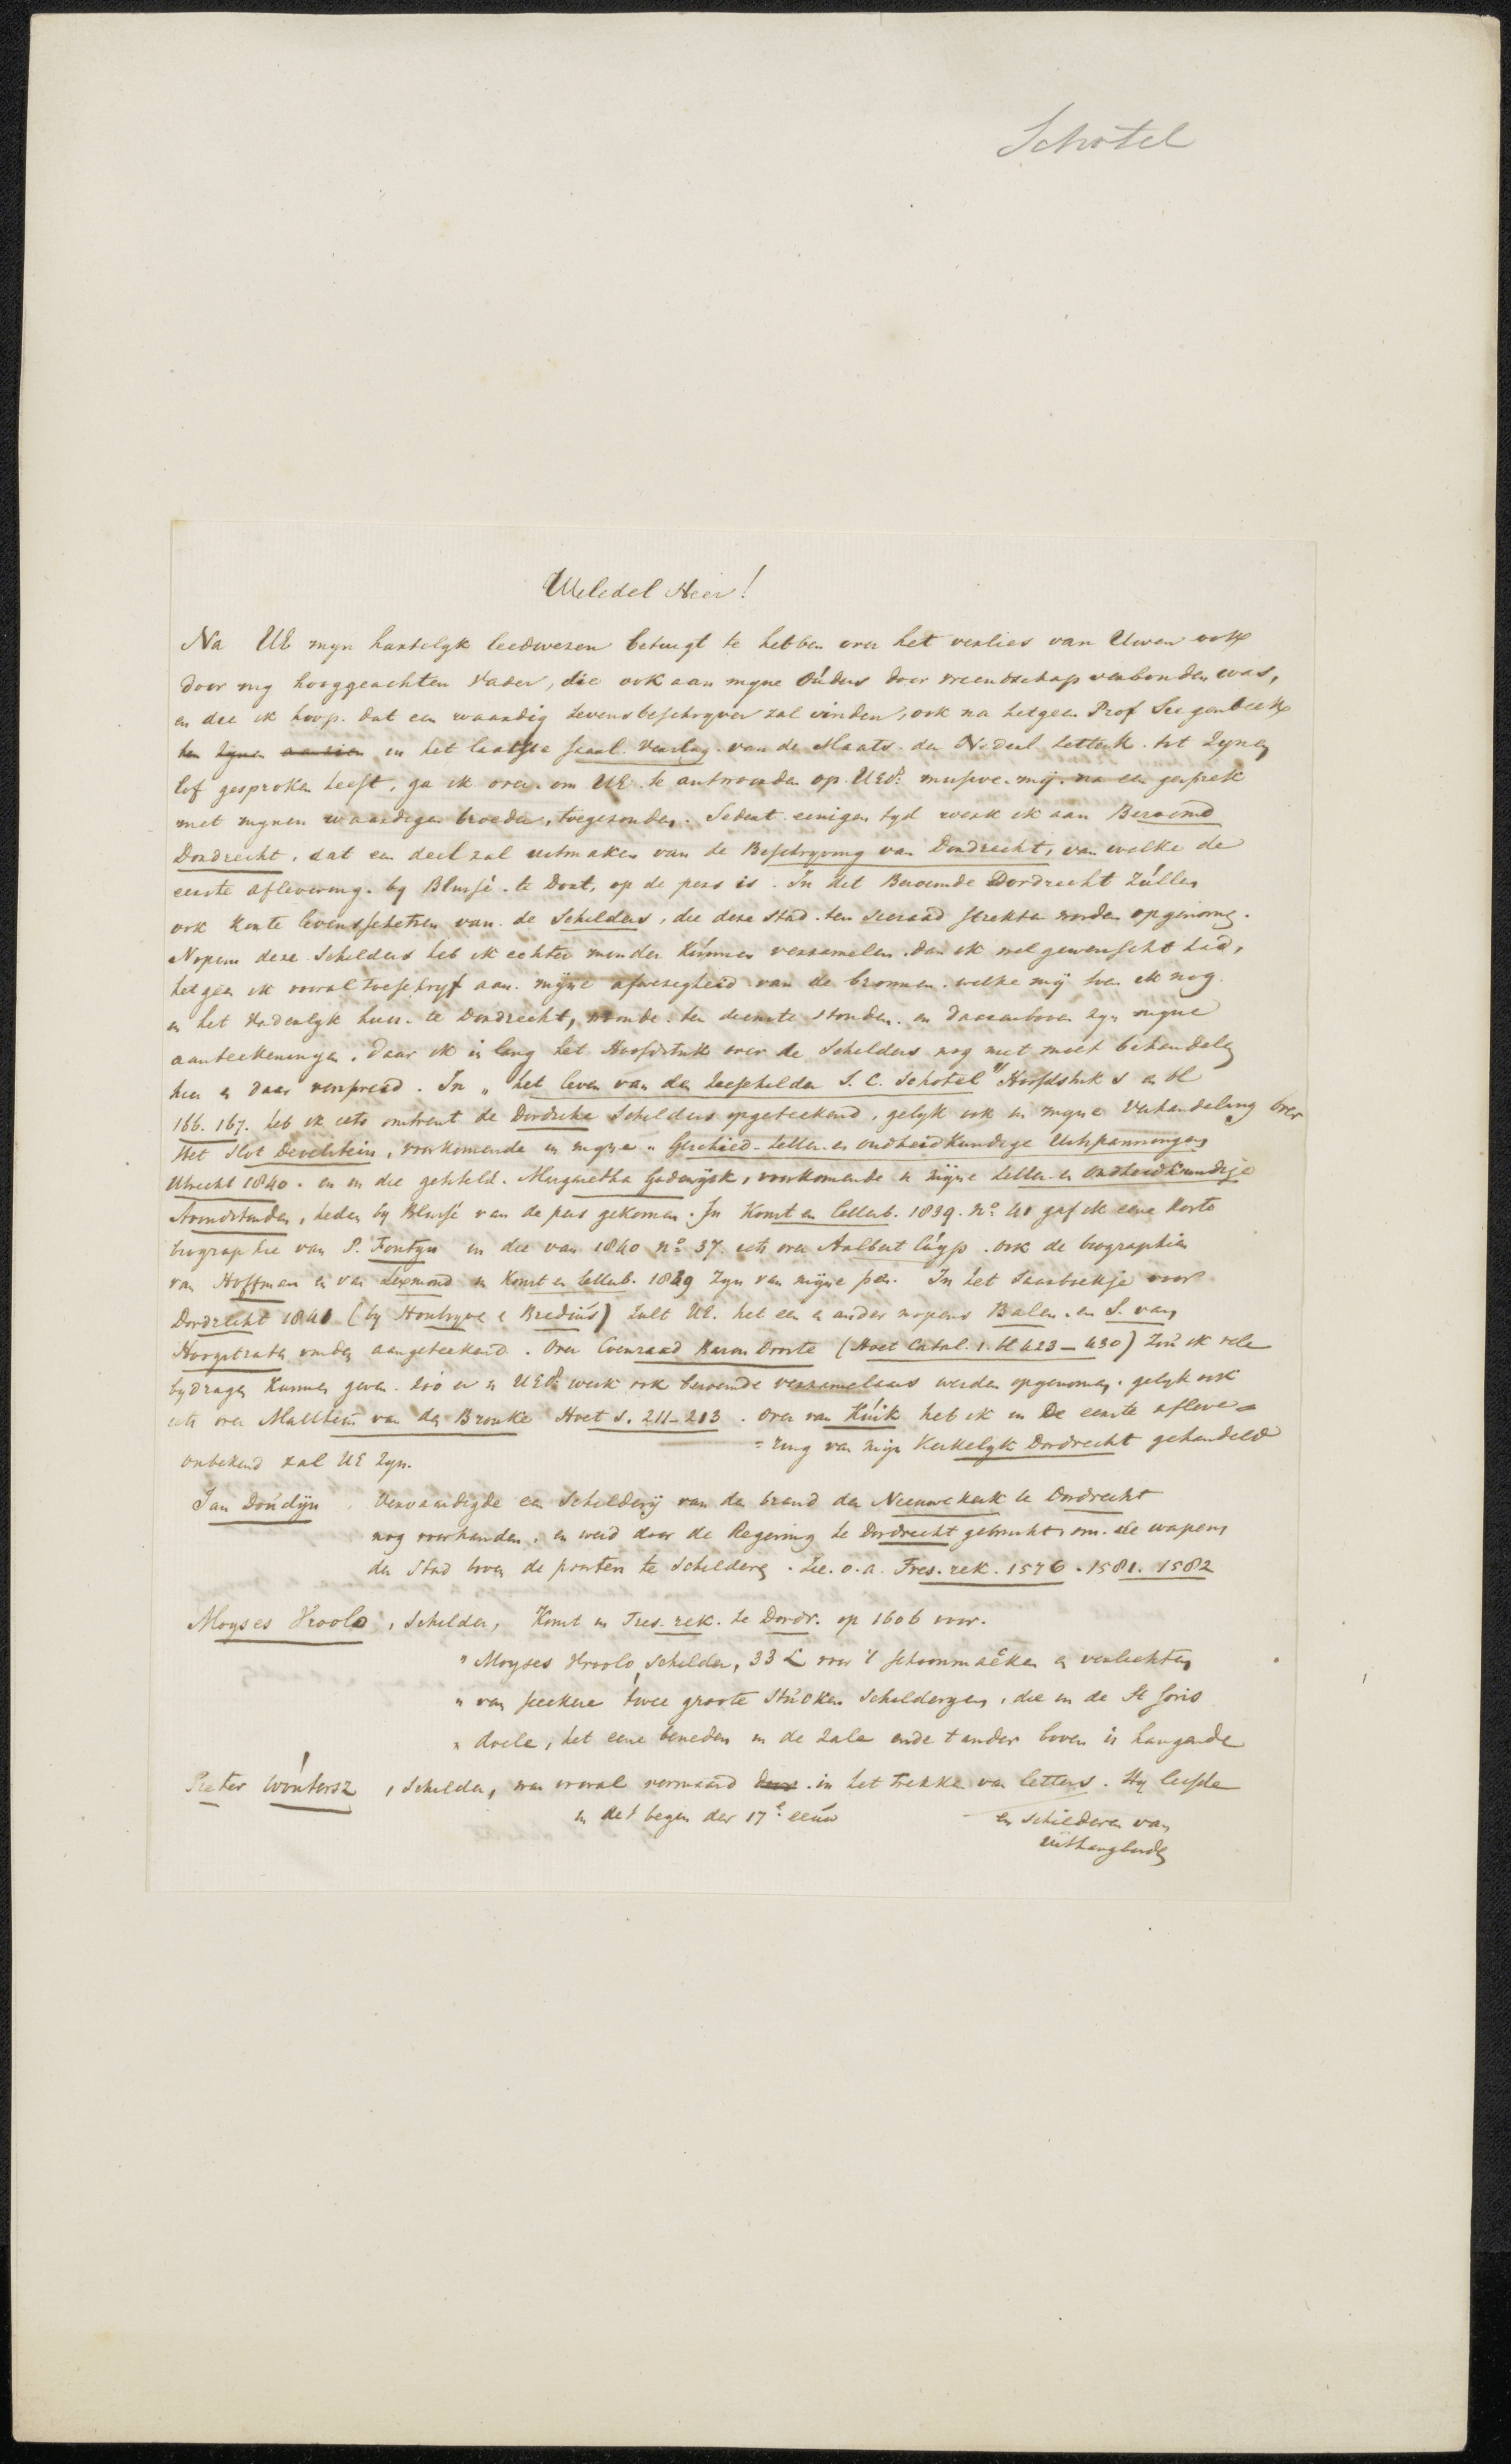 Schotel
Weledel Heer!
Na UE myn hartelyk leedwezen betuigt te hebben over het verlies van Uwen ook
door my hooggeachten Vader, die ook aan myne Ouders door vreendschap verbonden was,
en die ik hoop dat een waardig Levensbeschryver zal vinden, ook na hetgeen Prof Siegenbeek
in het laatste Jaarl. Verslag van de Maats. der Nederl. Letterk. tot Zynen
lof gesproken heeft, ga ik over om UE te antwoorden op UEds missive mij na een gesprek
met mynen waardigen broeder, toegezonden. Sedert eenigen tyd werk ik aan Beroemd
Dordrecht, dat een deel zal uitmaken van de Beschryving van Dordrecht, van welke de
eerste aflevering by Blussé te Dort, op de pers is. In dit Beroemde Dordrecht zullen
ook korte levensschetsen van de Schilders, die deze stad ten sieraad strekten worden opgenomen.
Nopens deze Schilders heb ik echter minder kunnen verzamelen dan ik wel gewenscht had,
hetgeen ik vooral toeschryf aan myne afwezigheid van de bronnen welke mij toen ik nog
in het Vaderlyk huis te Dordrecht, woonde ten dienste stonden en daarenboven zyn myne
aanteekeningen, daar ik in lang het Hoofdstuk over de Schilders nog niet moet behandelen
hier en daar verspreid. In "het leven van den Zeeschilder J. C. Schotel" Hoofdstuk 5 en bl
166. 167. heb ik iets omtrent de Dordsche Schilders opgeteekend, gelyk ook in myne Verhandeling over
Het Slot Develstein, voorkomende in myne "Geschied- Letter- en Oudheidkundige Uitspanningen
Utrecht 1840. en in die getiteld. Margaretha Godewijck, voorkomende in mijne Letter- en Oudheidkundige
Avondstonden, heden by Blussé van de pers gekomen. In Konst en Letterb. 1839. No 41 gaf ik eene korte
biographie van P. Fontyn en die van 1840 No 37. iets over Aalbert Cuyp. ook de biographien
van Hoffman en van Lexmond in Konst en Letterb. 1829 zyn van mijne pen. In het Jaarboekje voor
Dordrecht 1841 (by Houtryve & Bredius) zult UE. het een en ander nopens Balen en S. van
Hoogstraten vinden aangeteekend. Over Coenraad Baron Droste (Hoet Catal. 1. bl 423–430) zou ik vele
bydragen kunnen geven zoo er in UEds werk ook beroemde verzamelaars werden opgenomen, gelyk ook
iets over Mattheus van den Brouke Hoet 1. 211–213. Over van Kuik heb ik in De eerste afleve=
=ring van mijn Kerkelyk Dordrecht gehandeld
onbekend zal UE zyn.
Jan Doudijn, Vervaardigde een Schilderij van den brand der Nieuwe Kerk te Dordrecht
nog voorhanden, en werd door de Regering te Dordrecht gebruikt om de wapens
der Stad boven de poorten te Schilderen. Zie o.a. Tres. rek. 1576. 1581. 1582
Moyses Vroolo, Schilder, komt in Tres. rek. te Dordr. op 1606 voor.
" Moyses Vroolo Schilder, 33 £ voor 't schoonmaeken en verlichten
" van seeckere twee groote Stucken Schilderyen, die in de St Joris
" doele, het eene beneden in de Zale ende t ander boven is hangende
Pieter Woutersz, Schilder, was vooral vermaard in het trekken van letters. Hij leefde
in het begin der 17e eeuw
en schilderen van
uithangborden